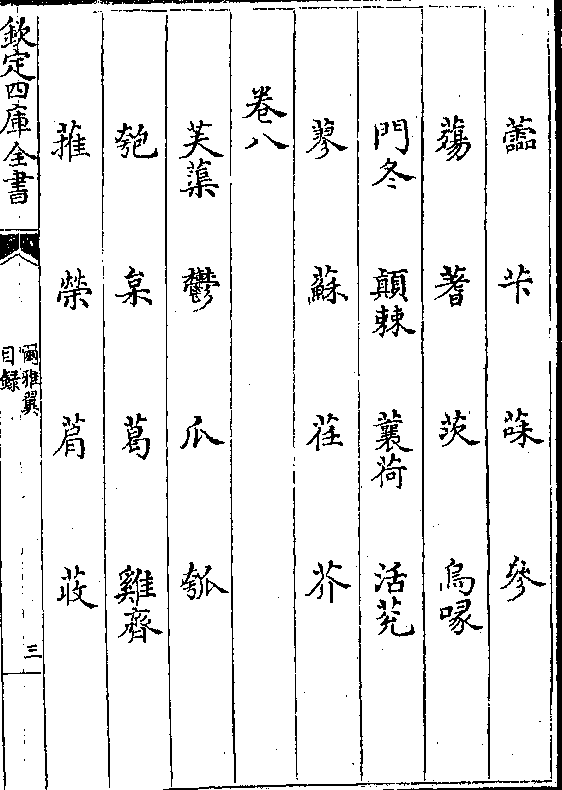 欽定四庫全書
蘦 芐 菋 參
薚 蓍 茨 烏喙
門冬 顛棘 蘘荷 活莌
蓼 蘇 荏 芥
卷八
芙蕖 鬱 瓜 瓠
匏 枲 葛 雞齊
蓷 榮 荍
爾雅翼
目録
三